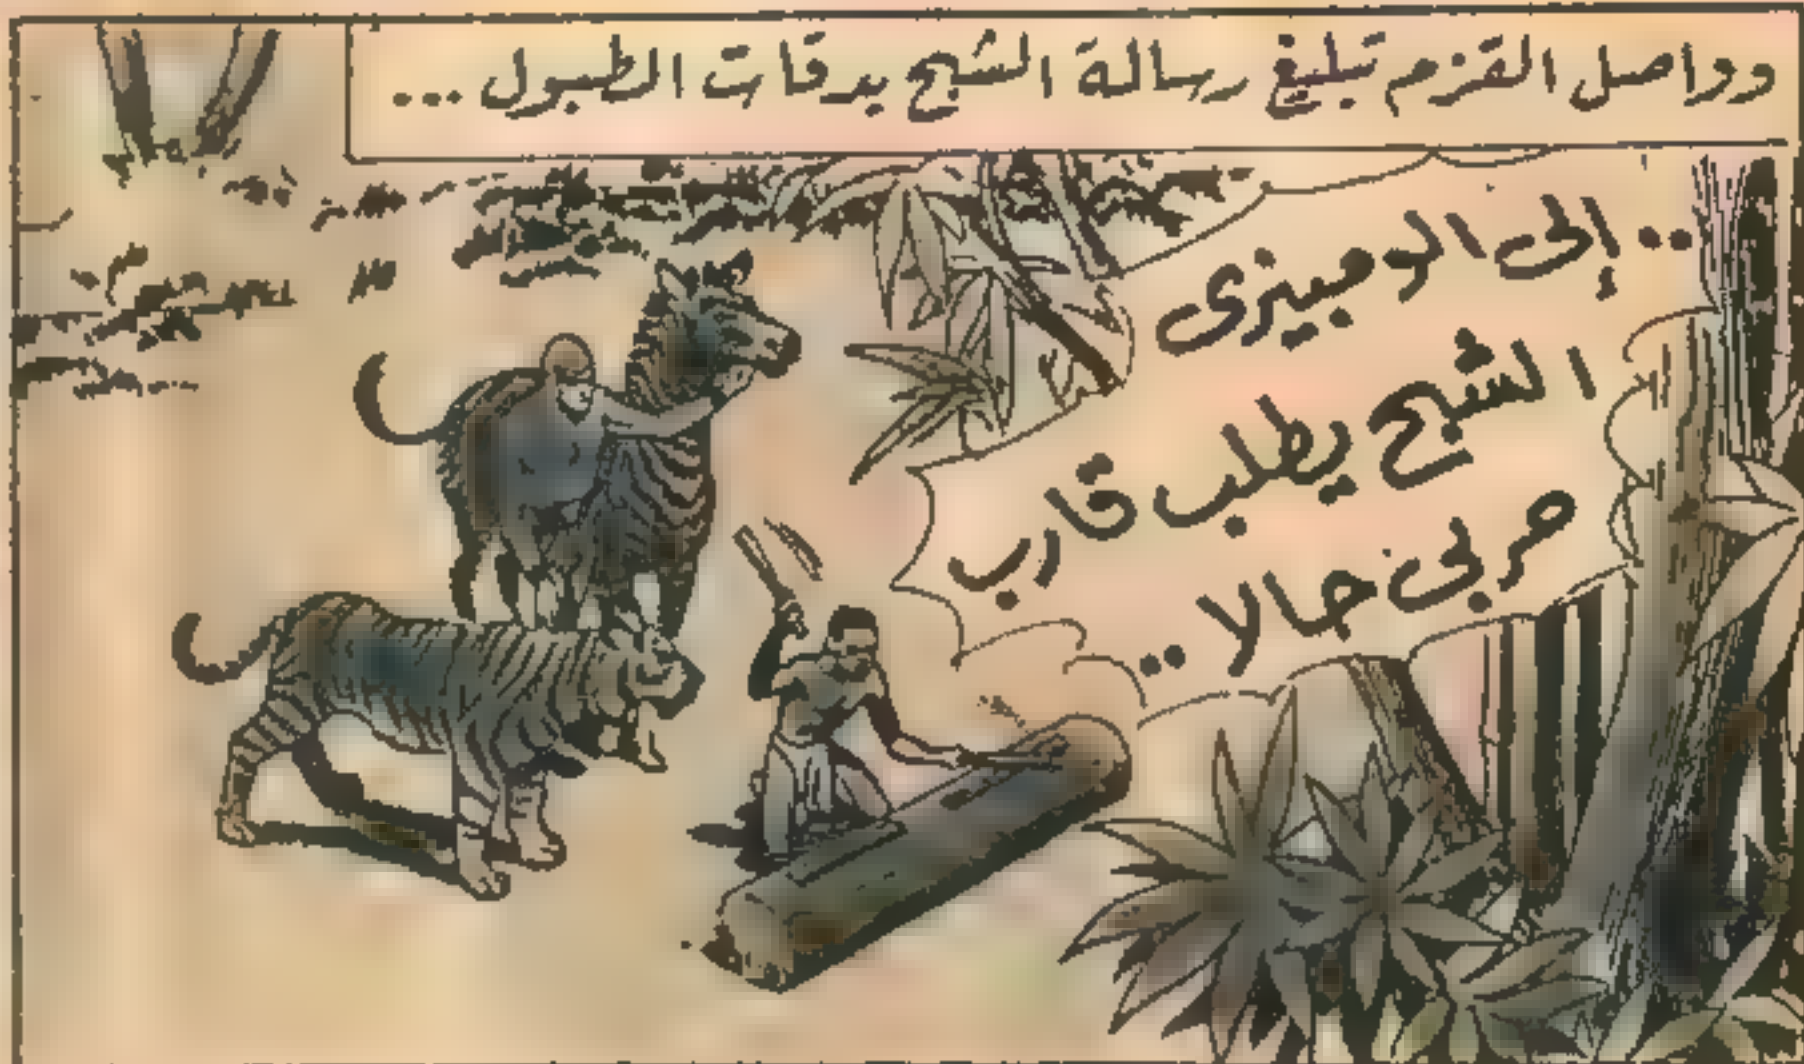 وواصل القزم تبليغ رسالة الشبح بدقات الطبول ...
.. إلى الومبيزى
الشبح يطلب قارب
حربى حالا ..